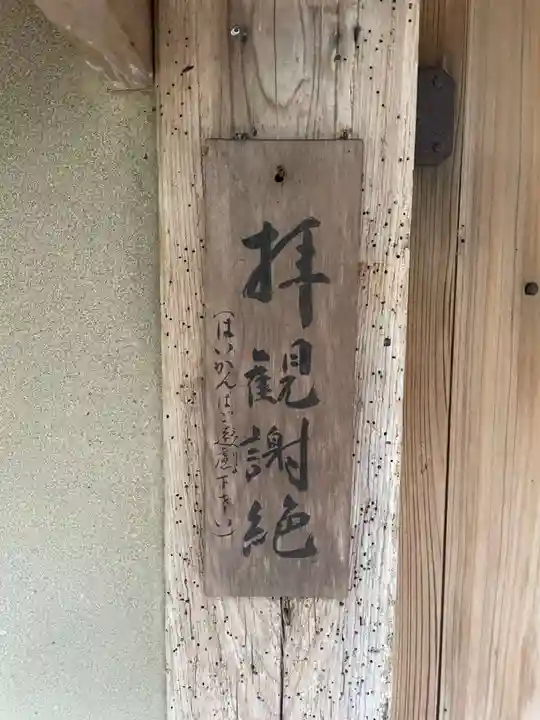 拝観謝絶
(はいかんはご遠慮下さい)